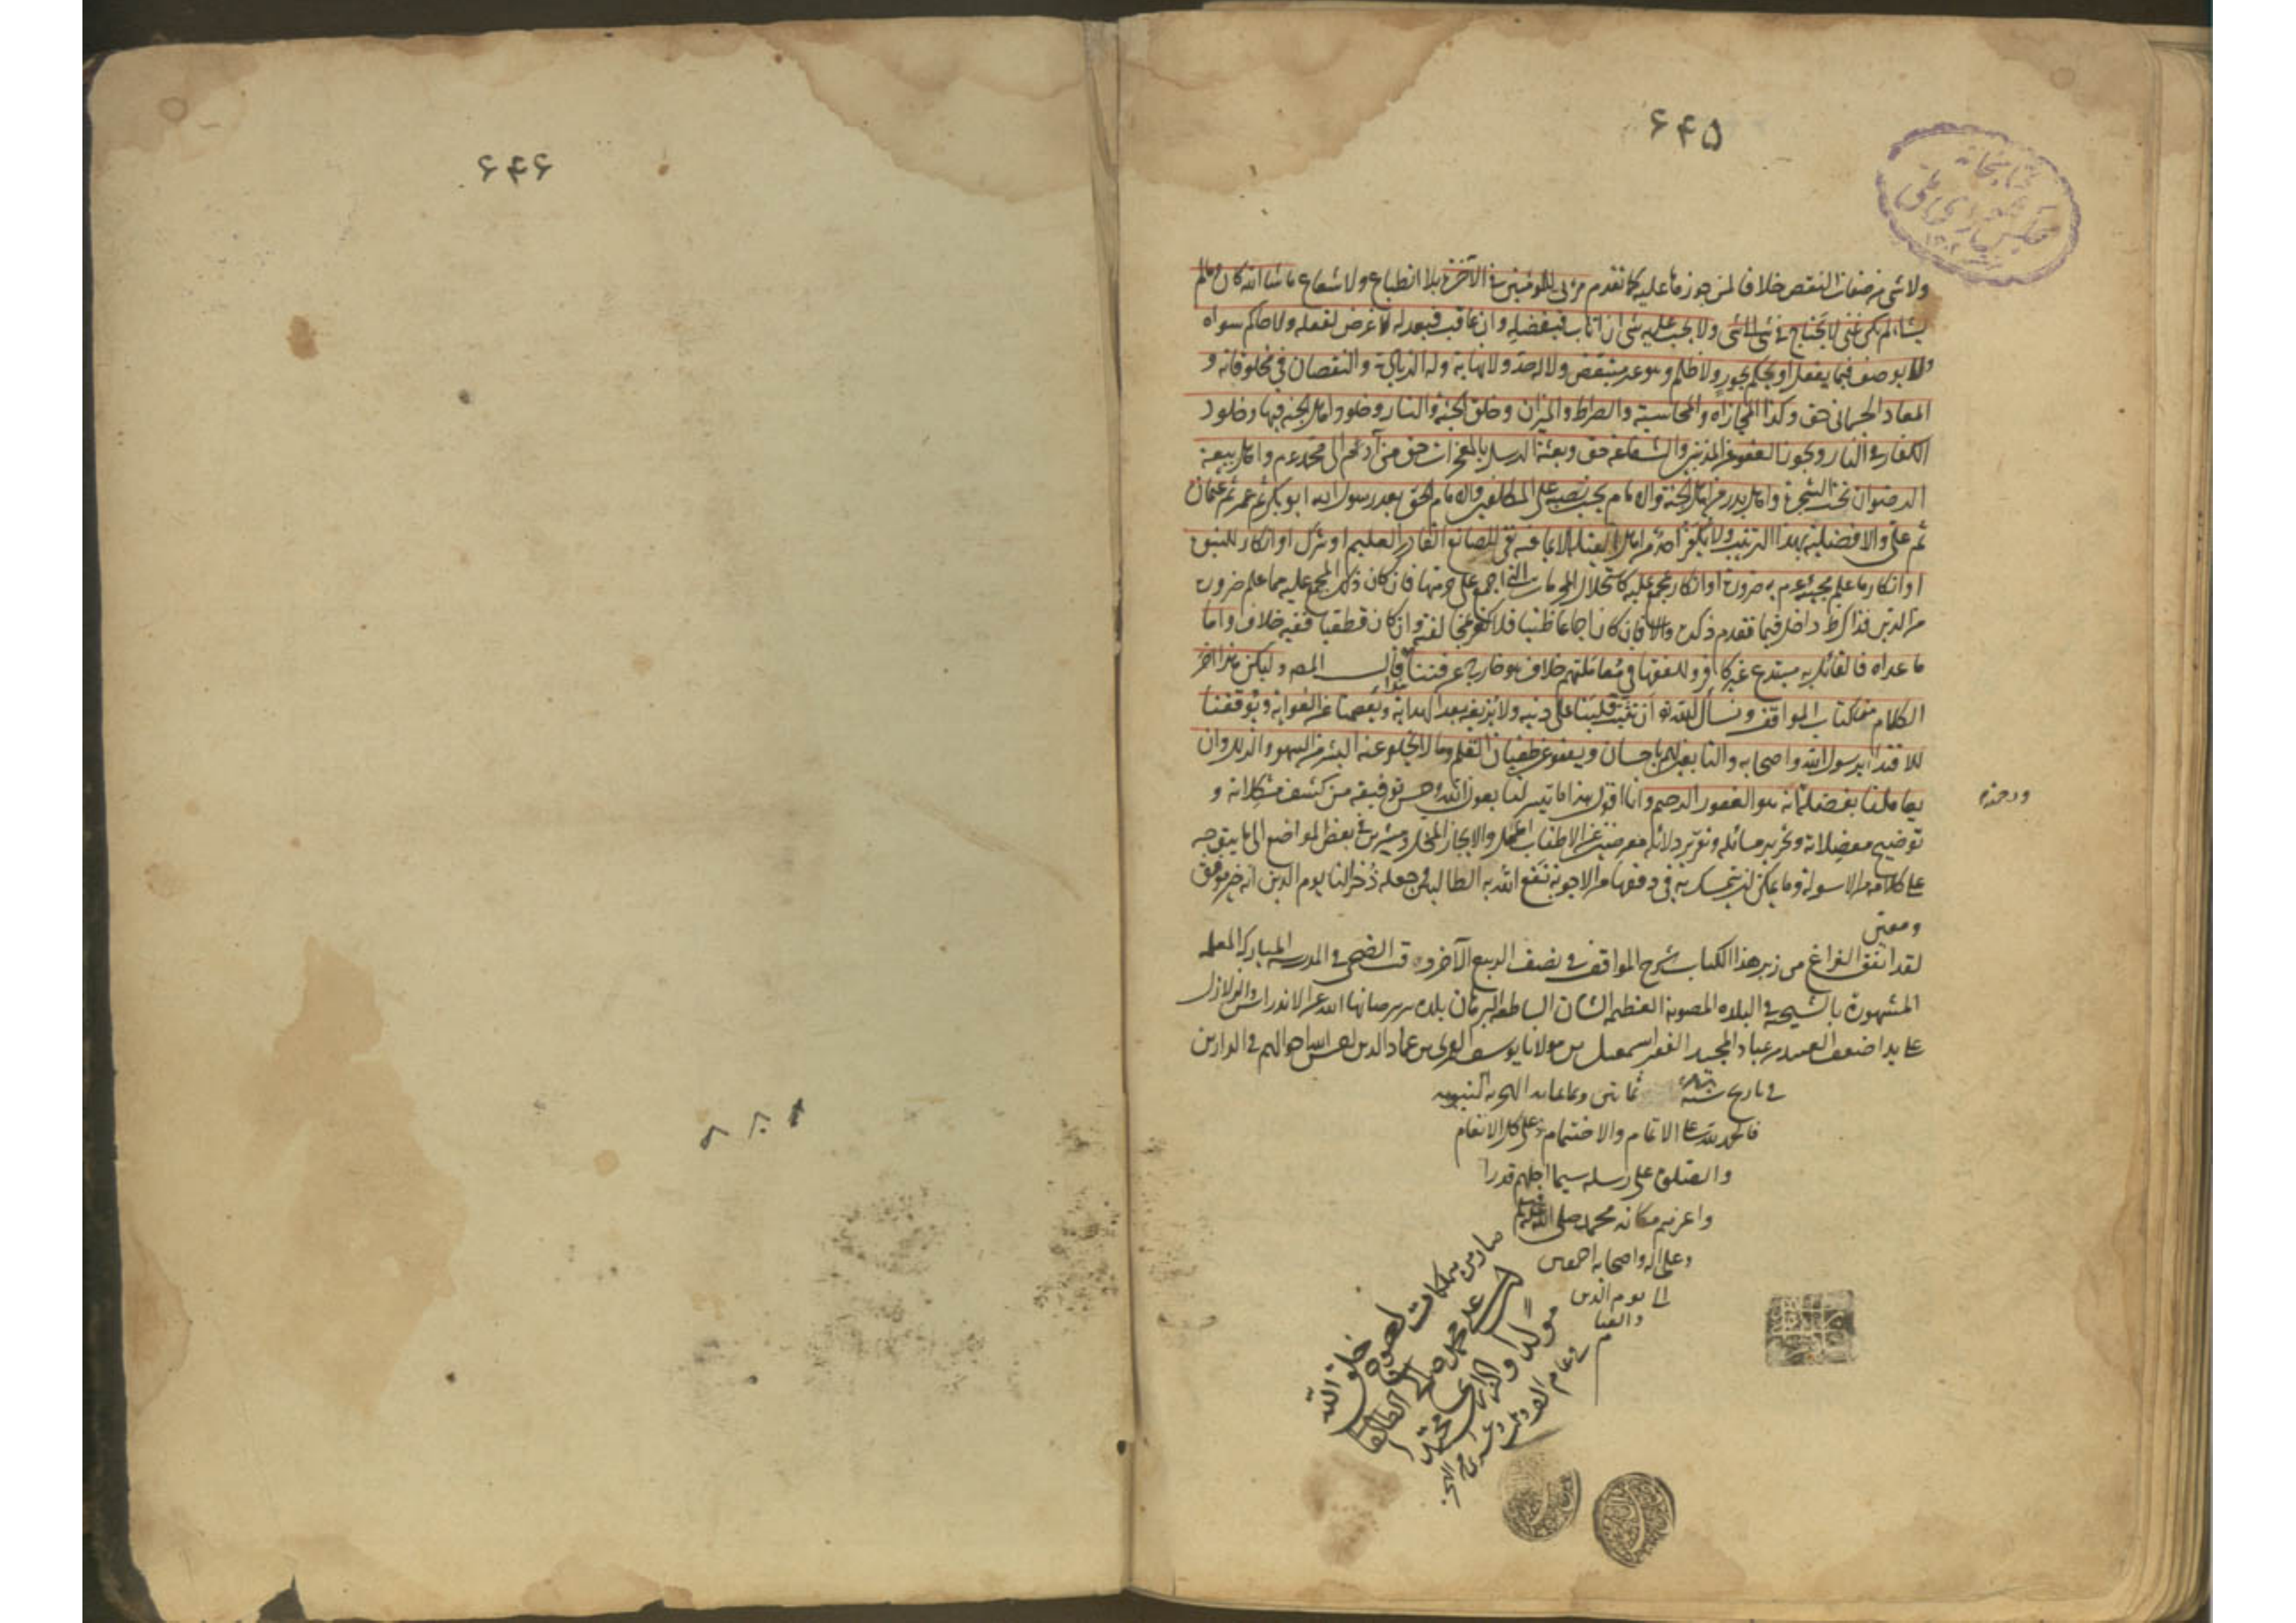 ۶۴۵
كتابخانه
مجلس شورای ملی
ولا شئ من صفات النقص خلافا لمن جوزها عليه كما تقدم مرئی للمؤمنين فی الآخرة بلا انطباع ولا شعاع ما شاء الله كان وما لم
يشاء لم يكن غنی لا يحتاج فی شئ الى شئ ولا يجب عليه شئ ان اثاب فبفضله وان عاقب فبعدله لا غرض لفعله ولا حاكم سواه
ولا يوصف فيما يفعل او يحكم بجور ولا ظلم وهو غير متبعض ولا له حد ولا نهاية وله الزيادة والنقصان فی مخلوقاته و
المعاد الجسمانی حق وكذا المجازاه والمحاسبة والصراط والميزان وخلق الجنة والنار وخلود اهل الجنة فيها وخلود
الكفار فی النار ويجوز العفو عن المذنبين والشفاعة حق وبعثة الرسل بالمعجزات حق من آدم الى محمد عم واهل بيعة
الرضوان تحت الشجرة واهل بدر من اهل الجنة والامام يجب نصبه على المكلفين والامام الحق بعد رسول الله ابو بكر ثم عمر ثم عثمان
ثم على والافضلية بهذا الترتيب ولا نكفر احدا من اهل القبلة الا بما فيه نفی للصانع القادر العليم او شرك او انكار للنبوة
او انكار ما علم مجيئه عم به ضرورة او انكار لمجمع عليه كاستحلال المحرمات التی اجمع على حرمتها فان كان ذلك المجمع عليه مما علم ضرورة
من الدين فذاك ظ داخل فيما تقدم ذكره والا فان كان اجماعا ظنيا فلا كفر بمخالفته وان كان قطعيا ففيه خلاف واما
ما عداه فالقائل به مبتدع غير كافر وللفقها فی معاملتهم خلاف هو خارج عن فننا قال المصـ وليكن هذا آخر
الكلام من كتاب المواقف ونسأل الله تع ان يثبت قلبنا على دينه ولا يزيغه بعد الهداية ويعصمنا عن الغواية ويوفقنا
للاقتداء برسول الله واصحابه والتابعين لهم باحسان ويعفو عن طغيان القلم وما لا يخلو عنه البشر من السهو والزلل وان
يعاملنا بفضله انه هو الغفور الرحيم وانا اقول هذا ما تيسر لنا بعون الله وحسن توفيقه من كشف مشكلاته و
ورحمته
توضيح معضلاته وتحرير مسائله وتقرير دلائله معرضين عن الاطناب الممل والايجاز المخل ومشيرين فی بعض المواضع الى ما يتوجه
على كلامه من الاسولة وما يمكن ان يتمسك به فی دفعها من الاجوبة نفع الله به الطالبين وجعله ذخرا لنا يوم الدين انه خير موفق
ومعين
لقد اتفق الفراغ من زبر هذا الكتاب شرح المواقف فی نصف الربيع الآخر وقت الضحى فی المدرسه المباركه
المشهورة فی البلده المصونه العظيمه الشان الساطعه البرهان بلده صانها الله عن الاندراس والزلازل
على يد اضعف العبيد من عباد المجيد الفقير اسمعيل بن مولانا يوسف بن عماد الدين احوالهم فی الدارين
فی تاريخ سنه ثمانين وثمانمايه الهجريه النبويه
فالحمد لله على الاتمام والاختتام وعلى كل الانعام
والصلوة على رسله سيما اجلهم قدرا
واعزهم مكانه محمد صلى الله عليه وسلم
وعلى اله واصحابه اجمعين
الى يوم الدين
۶۴۶